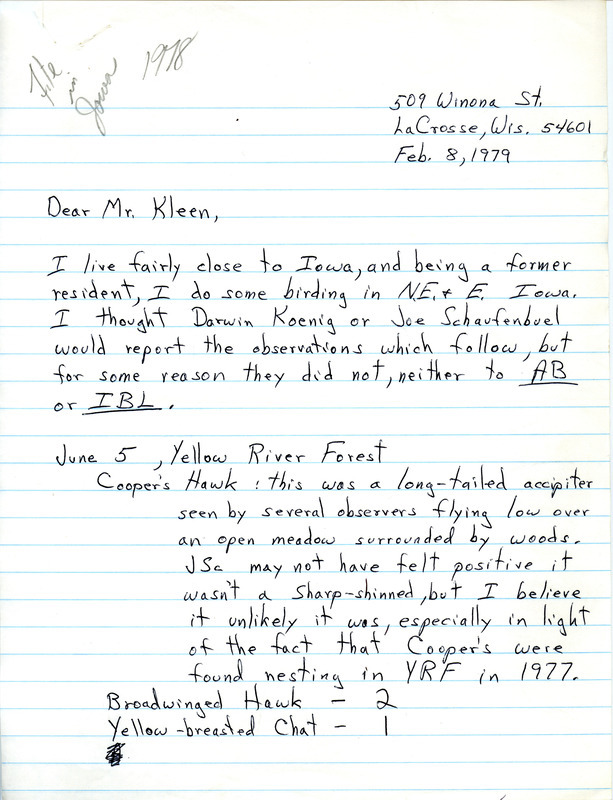 File
in
Iowa 1978
509 Winona St.
LaCrosse, Wis. 54601
Feb. 8, 1979
Dear Mr. Kleen,
I live fairly close to Iowa, and being a former
resident, I do some birding in N.E. & E. Iowa.
I thought Darwin Koenig or Joe Schaufenbuel
would report the observations which follow, but
for some reason they did not, neither to AB
or IBL.
June 5, Yellow River Forest
Cooper's Hawk : this was a long-tailed accipiter
seen by several observers flying low over
an open meadow surrounded by woods.
JSc may not have felt positive it
wasn't a Sharp-shinned, but I believe
it unlikely it was, especially in light
of the fact that Cooper's were
found nesting in YRF in 1977.
Broadwinged Hawk - 2
Yellow-breasted Chat - 1